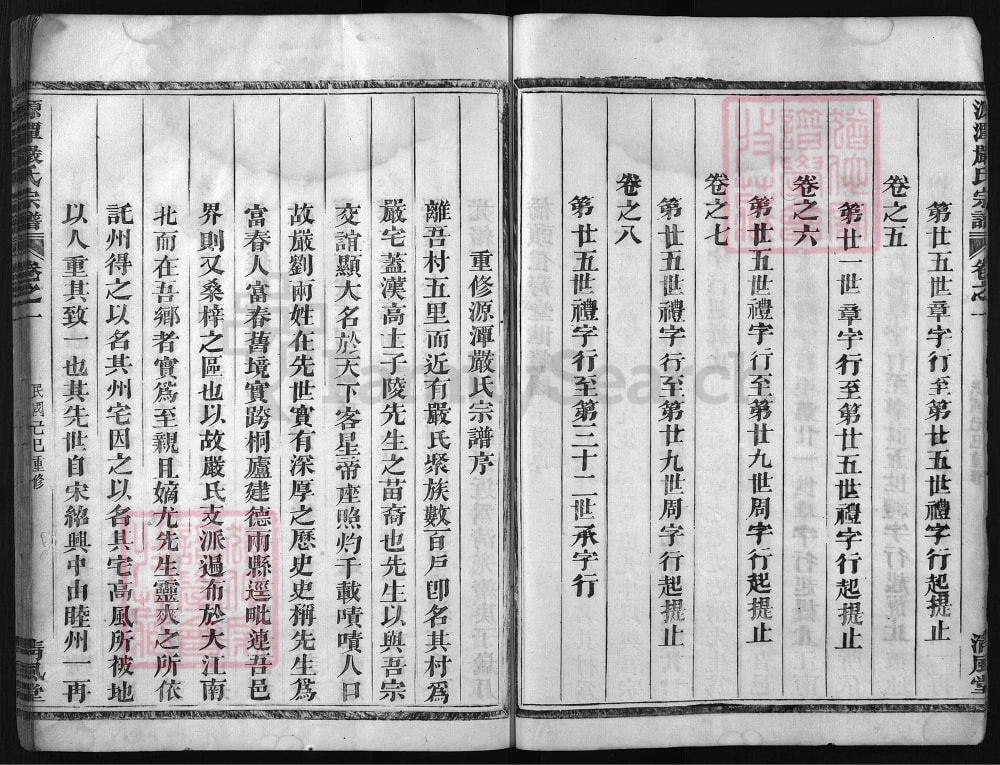 源潭嚴氏宗譜
卷之一
清風堂
第廿五世章字行至第廿五世禮字行起提止
卷之五
第廿一世章字行至第廿五世禮字行起提止
卷之六
第廿五世禮字行至第廿九世周字行起提止
卷之七
第廿五世禮字行至第廿九世周字行起提止
卷之八
第廿五世禮字行至第三十二世承字行
重修源潭嚴氏宗譜序
離吾村五里而近有嚴氏聚族數百戶卽名其村爲
嚴宅蓋漢高士子陵先生之苗裔也先生以與吾宗
交誼顯大名於天下客星帝座照灼千載嘖嘖人口
故嚴劉兩姓在先世實有深厚之歷史史稱先生爲
富春人富春舊境實跨桐廬建德兩縣逕毗連吾邑
界則又桑梓之區也以故嚴氏支派遍布於大江南
北而在吾鄉者實爲至親且嫡尤先生靈爽之所依
託州得之以名其州宅因之以名其宅高風所被地
以人重其致一也其先世自宋紹興中由睦州一再
源潭嚴氏宗譜
卷之一
民國己巳重修
清風堂
FamilySearch